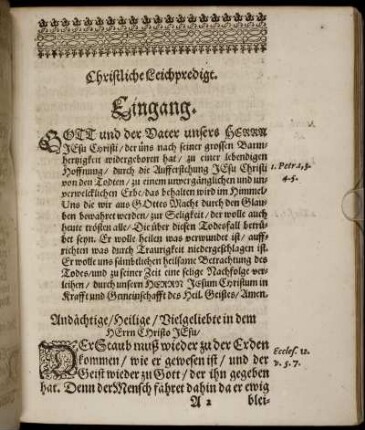 Christliche Leichpredigt.
Eingang.
GOTT und der Vater unsers HERRN
JEsu Christi / der uns nach seiner grossen Barm-
hertzigkeit widergeboren hat / zu einer lebendigen
Hoffnung / durch die Aufferstehung JEsu Christi
von den Todten / zu einem unvergänglichen und un-
verwelcklichen Erbe / das behalten wird im Himmel /
Uns die wir aus GOttes Macht durch den Glau-
ben bewahret werden / zur Seligkeit / der wolle auch
heute trösten alle / Die über diesen Todesfall betrü-
bet seyn. Er wolle heilen was verwundet ist / auff-
richten was durch Traurigkeit niedergeschlagen ist.
Er wolle uns sämbtlichen heilsame Betrachtung des
Todes / und zu seiner Zeit eine selige Nachfolge ver-
leihen / durch unsern HERRN JEsum Christum in
Krafft und Gemeinschafft des Heil. Geistes / Amen.
1. Petr. 1, 3.
4-5.
Andächtige / Heilige / Vielgeliebte in dem
HErrn Christo JEsu /
DEr Staub muß wieder zu der Erden
kommen / wie er gewesen ist / und der
Geist wieder zu Gott / der ihn gegeben
hat. Denn der Mensch fähret dahin da er ewig
Eccles. 12.
v. 5. 7.
A 2 blei-